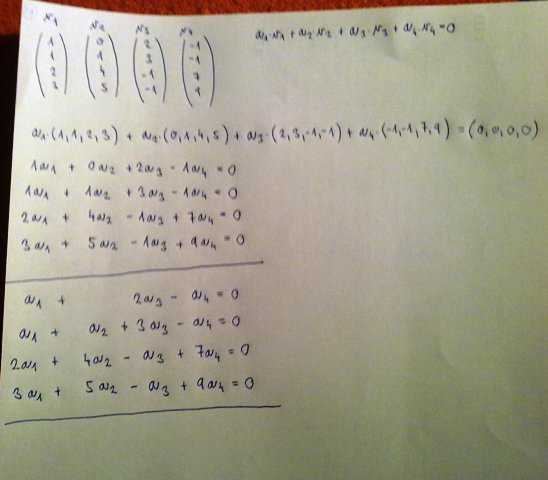 v1 v2 v3 v4
a1·v1 + a2·v2 + a3·v3 + a4·v4 = 0
1 0 2 -1
1 1 3 -1
2 4 -1 7
3 5 -1 9
a1·(1,1,2,3) + a2·(0,1,4,5) + a3·(2,3,-1,-1) + a4·(-1,-1,7,9) = (0,0,0,0)
1a1 + 0a2 + 2a3 - 1a4 = 0
1a1 + 1a2 + 3a3 - 1a4 = 0
2a1 + 4a2 - 1a3 + 7a4 = 0
3a1 + 5a2 - 1a3 + 9a4 = 0
a1 + 2a3 - a4 = 0
a1 + a2 + 3a3 - a4 = 0
2a1 + 4a2 - a3 + 7a4 = 0
3a1 + 5a2 - a3 + 9a4 = 0